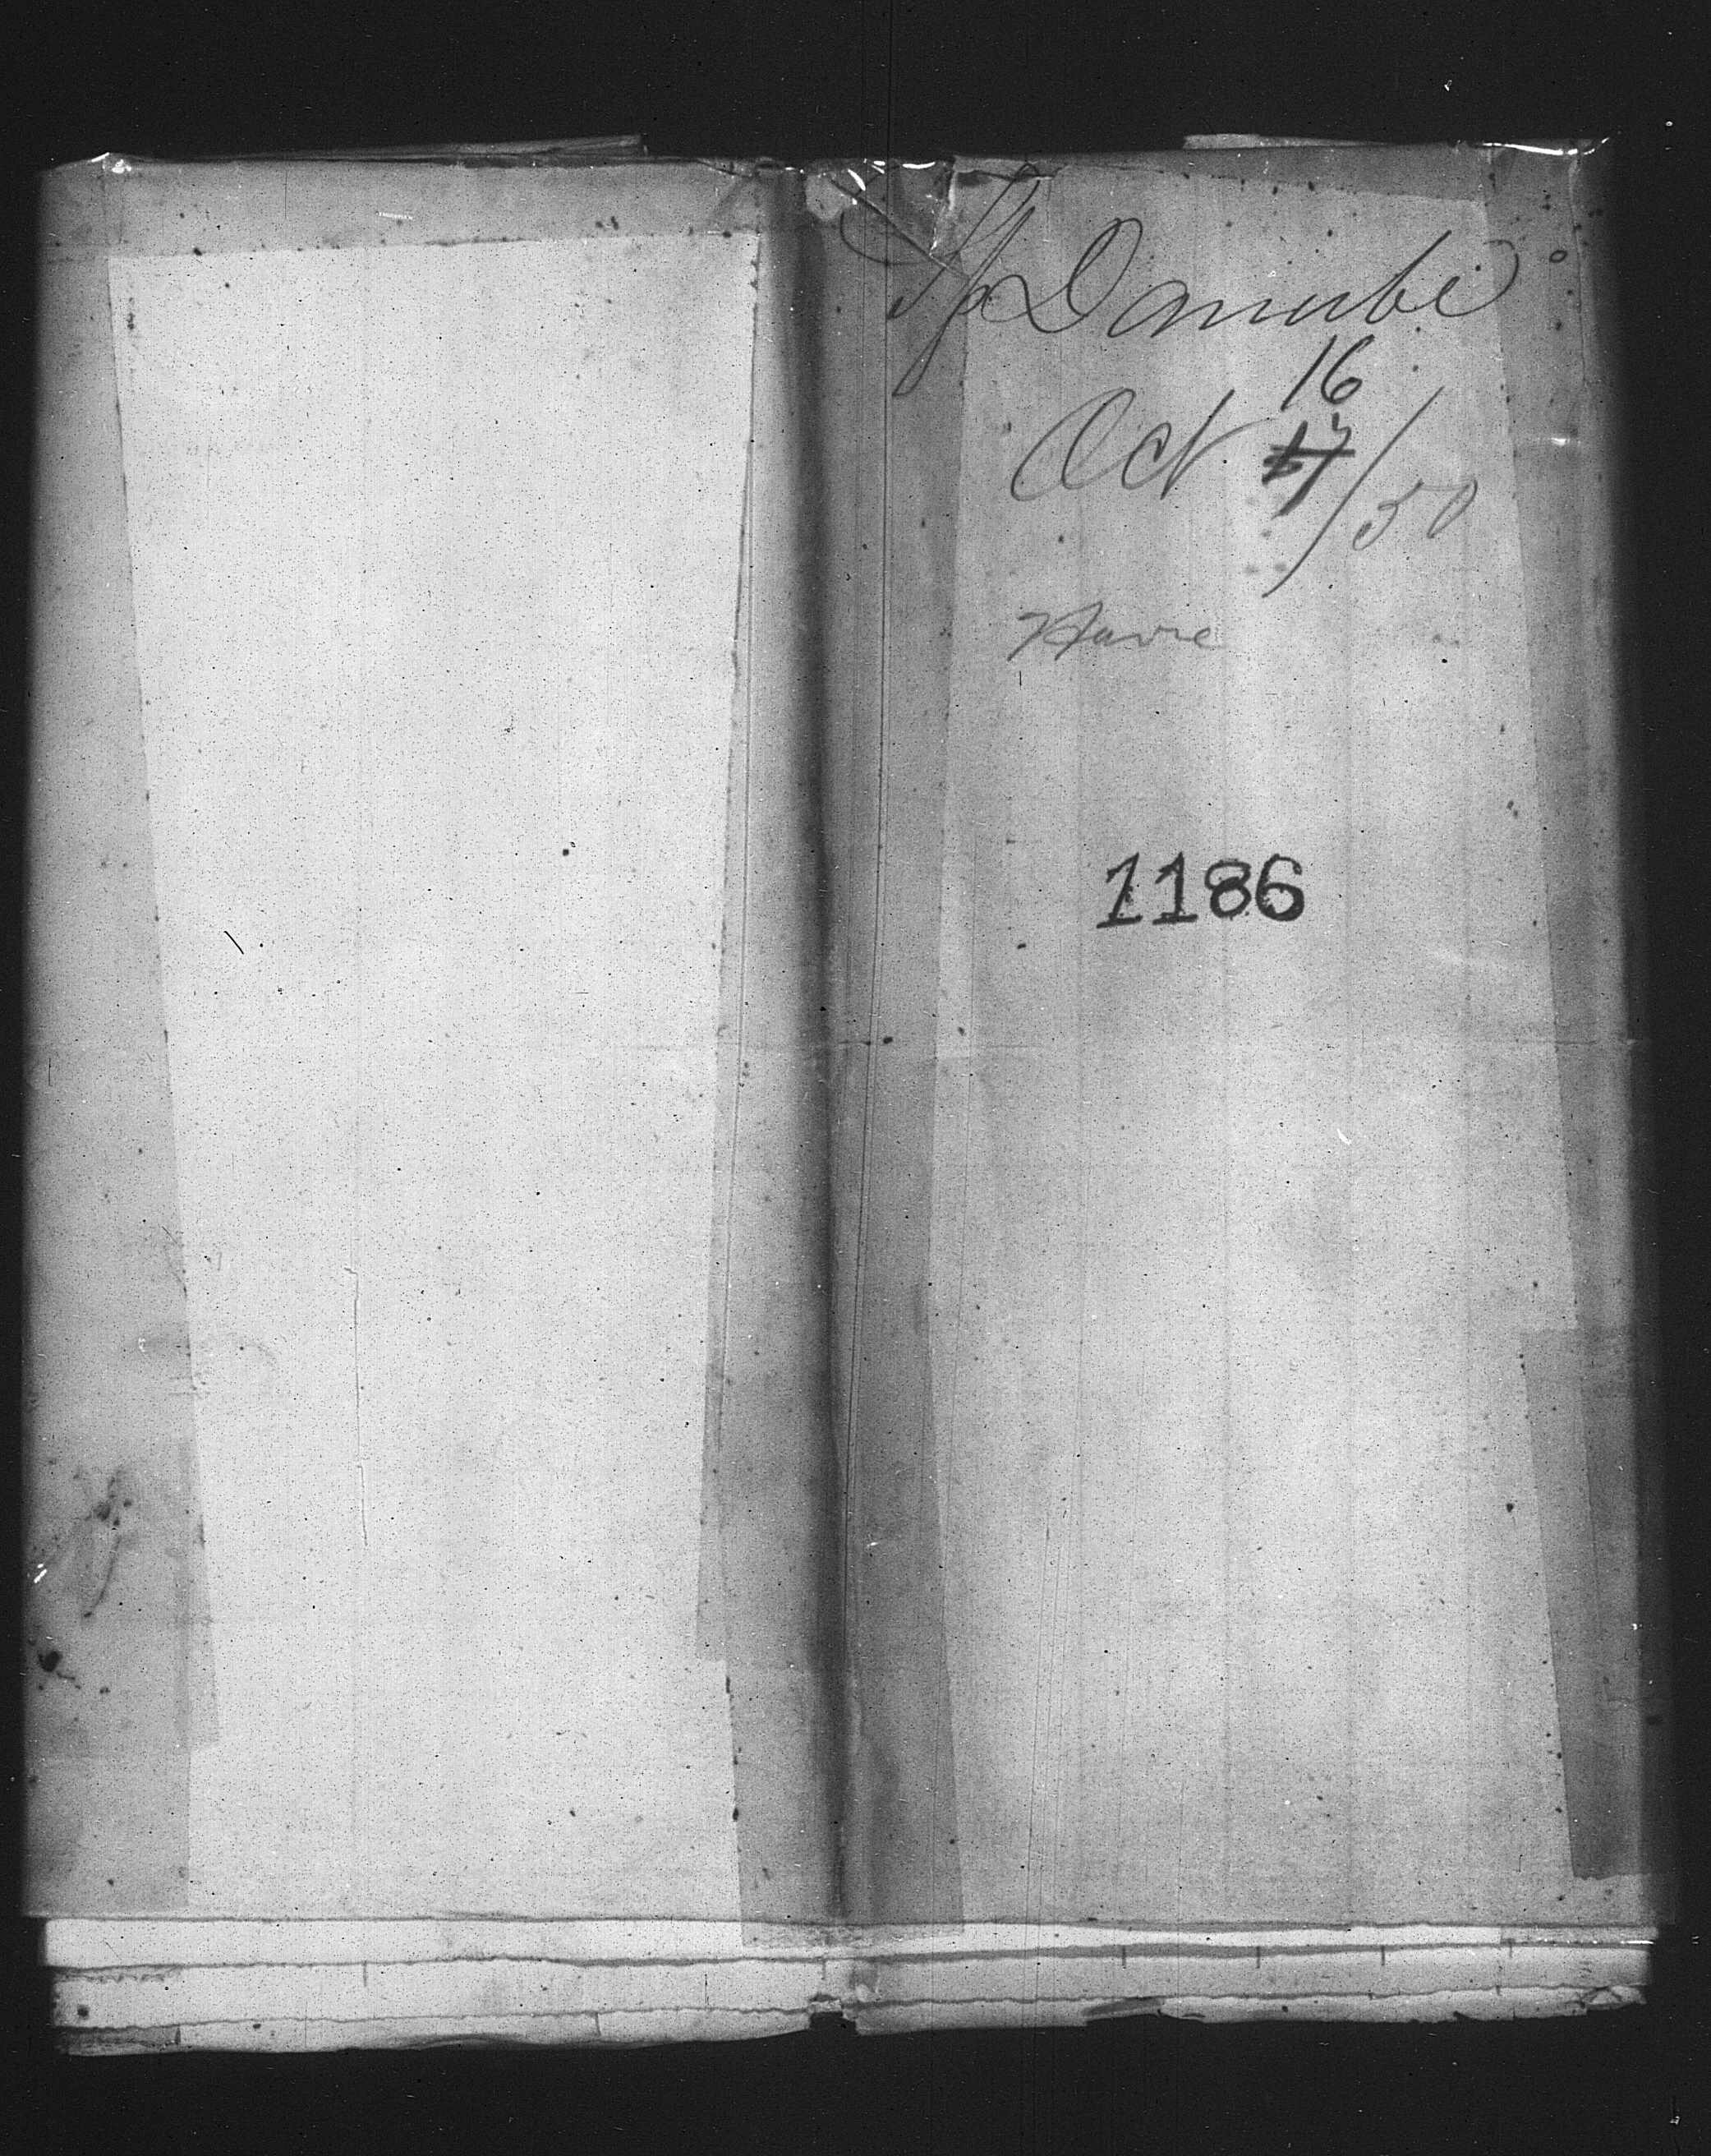 Sp Danube
16
Oct 17/50
Havre
1186